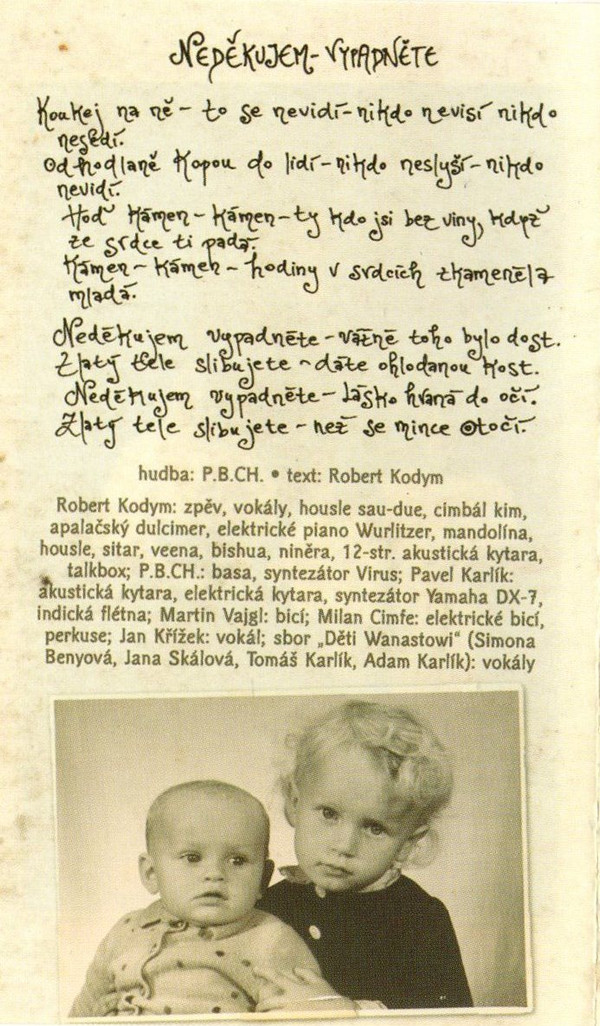 NEDĚKUJEM - VYPADNĚTE
Koukej na ně - to se nevidí - nikdo nevisí nikdo
nesedí.
Odhodlaně kopou do lidí - nikdo neslyší - nikdo
nevidí.
Hoď kámen - kámen - ty kdo jsi bez viny, když
ze srdce ti padá.
Kámen - kámen - hodiny v srdcích zkamenělá
mladá.
Neděkujem vypadněte - vážně toho bylo dost.
Zlatý tele slibujete - dáte ohlodanou kost.
Neděkujem vypadněte - lásko hraná do očí.
Zlatý tele slibujete - než se mince otočí.
hudba: P.B.CH. • text: Robert Kodym
Robert Kodym: zpěv, vokály, housle sau-due, cimbál kim,
apalačský dulcimer, elektrické piano Wurlitzer, mandolína,
housle, sitar, veena, bishua, niněra, 12-str. akustická kytara,
talkbox; P.B.CH.: basa, syntezátor Virus; Pavel Karlík:
akustická kytara, elektrická kytara, syntezátor Yamaha DX-7,
indická flétna; Martin Vajgl: bicí; Milan Cimfe: elektrické bicí,
perkuse; Jan Křížek: vokál; sbor „Děti Wanastowi“ (Simona
Benyová, Jana Skálová, Tomáš Karlík, Adam Karlík): vokály